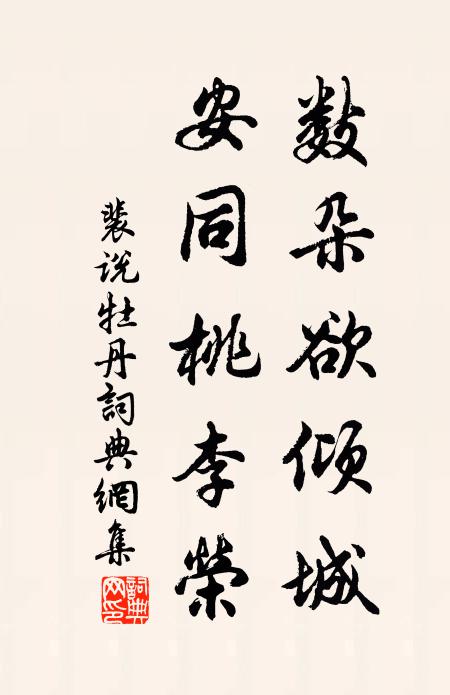 数朵欲倾城
安同桃李榮
裴说牡丹詞典網集
詞典网印